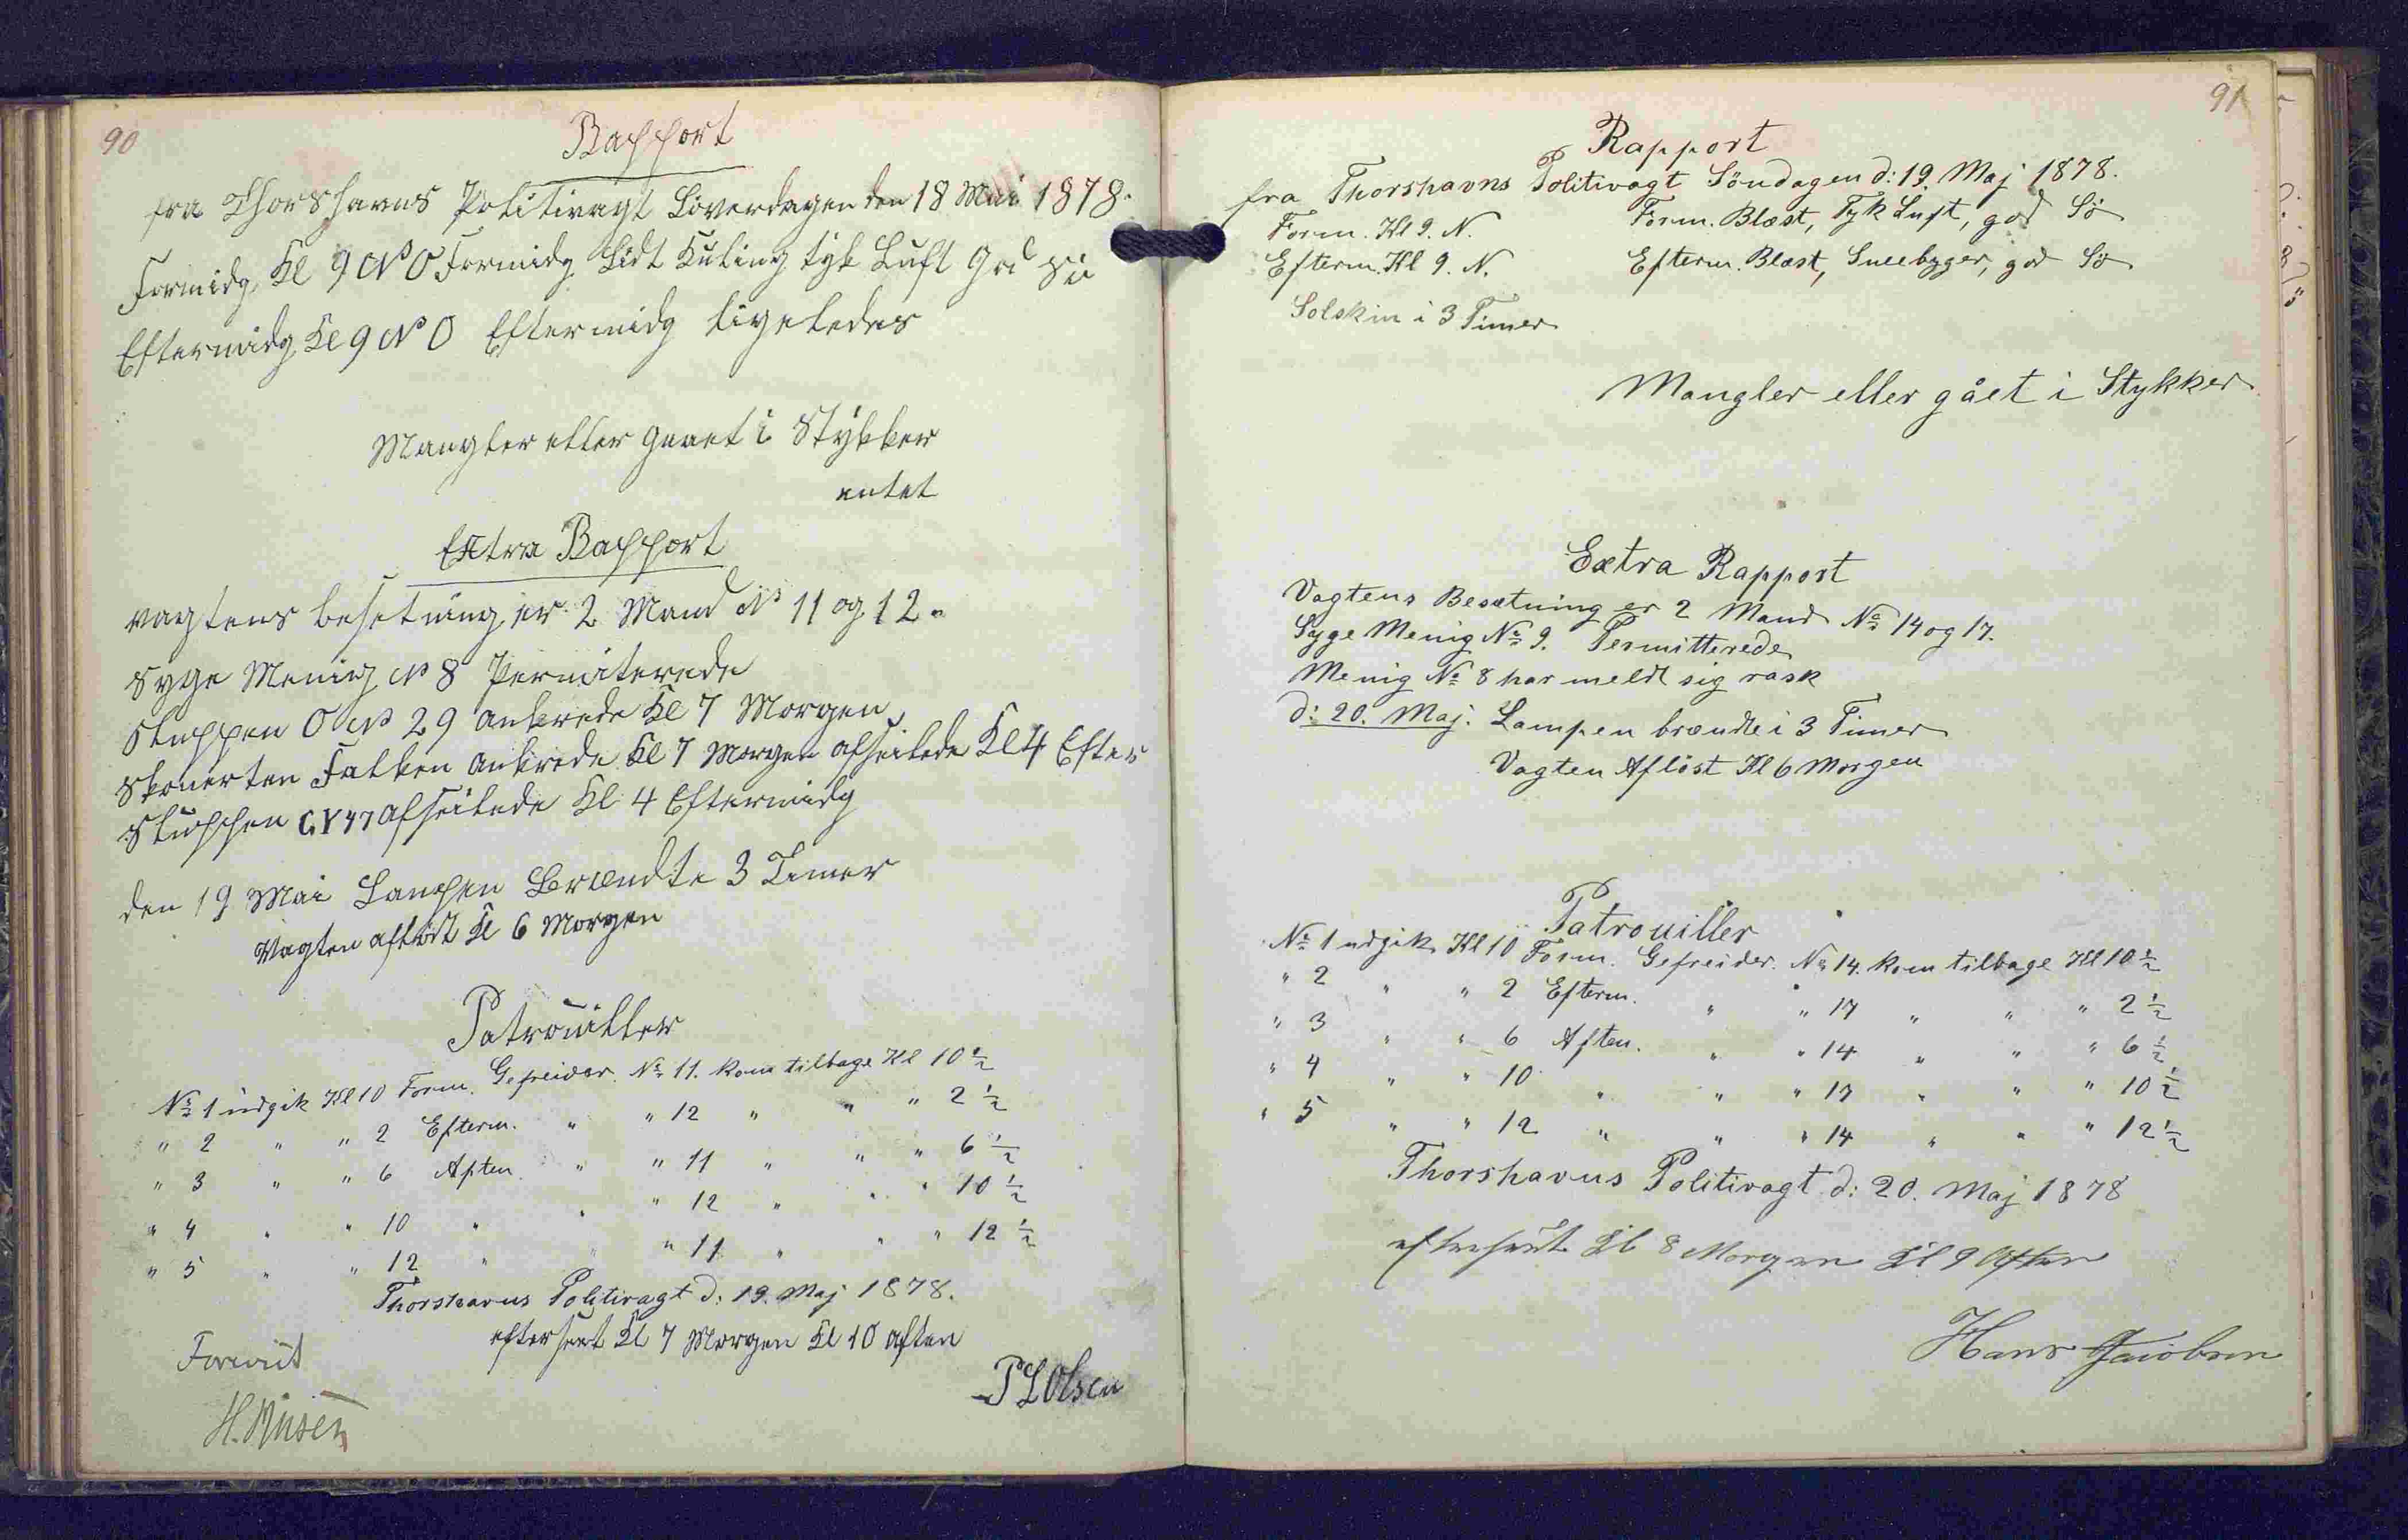 90
Rapport
fra Thorshavns Politivagt Löverdagen den 18 Mai 1878.
Formidg. Kl 9 N O Formidg Lidt Kuling tyk Luft God Sö
Eftermidg Kl 9 N O Eftermidg ligeledes
Mangler eller gaaet i Stykker
entet
Extra Rapport
vagtens besetning er 2 Mand No 11 og 12
Syge Menig No 8 Permiterede
Sluppen O No 29 ankrede Kl 7 Morgen
Skonerten Falken ankrede Kl 7 Morgen afseilede Kl 4 Efter
Sluppen GY 47 afseilede Kl 4 Eftermidg
den 19 Mai Lampen Brændte 3 Timer
Vagten aflöst Kl 6 Morgen
Patrouiller
No 1 udgik Kl 10 Form. Gefreider. No 11. kom tilbage Kl 10 1/2
" 2 " " 2 Efterm. " " 12 " " " 2 1/2
" 3 " " 6 Aften. " " 11 " " " 6 1/2
" 4 " " 10 " " " 12 " " " 10 1/2
" 5 " " 12 " " " 11 " " " 12 1/2
Thorshavns Politivagt d: 19. Maj 1878.
efterseet Kl 7 Morgen Kl 10 aften
P L Olsen
91
Rapport
fra Thorshavns Politivagt Söndagen d: 19. Maj 1878.
Form. Kl 9. N. Form. Blæst, Tyk Luft, god Sö
Efterm. Kl 9. N. Efterm. Blæst, Sneebyger, god Sö
Solskin i 3 Timer
Mangler eller gået i Stykker
Extra Rapport
Vagtens Besætning er 2 Mand No 14 og 17.
Syge Menig No 9. Permitterede
Menig No 8 har meldt sig rask
d: 20. Maj. Lampen brændte i 3 Timer
Vagten Aflöst Kl 6 Morgen
Patrouiller
No 1 udgik Kl 10 Form. Gefreider. No 14. kom tilbage Kl 10 1/2
" 2 " " 2 Efterm. " " 17 " " " 2 1/2
" 3 " " 6 Aften. " " 14 " " " 6 1/2
" 4 " " 10 " " " 17 " " " 10 1/2
" 5 " " 12 " " " 14 " " " 12 1/2
Thorshavns Politivagt d: 20. Maj 1878
efterseet Kl 8 Morgen Kl 9 Aften
Hans Jacobsen